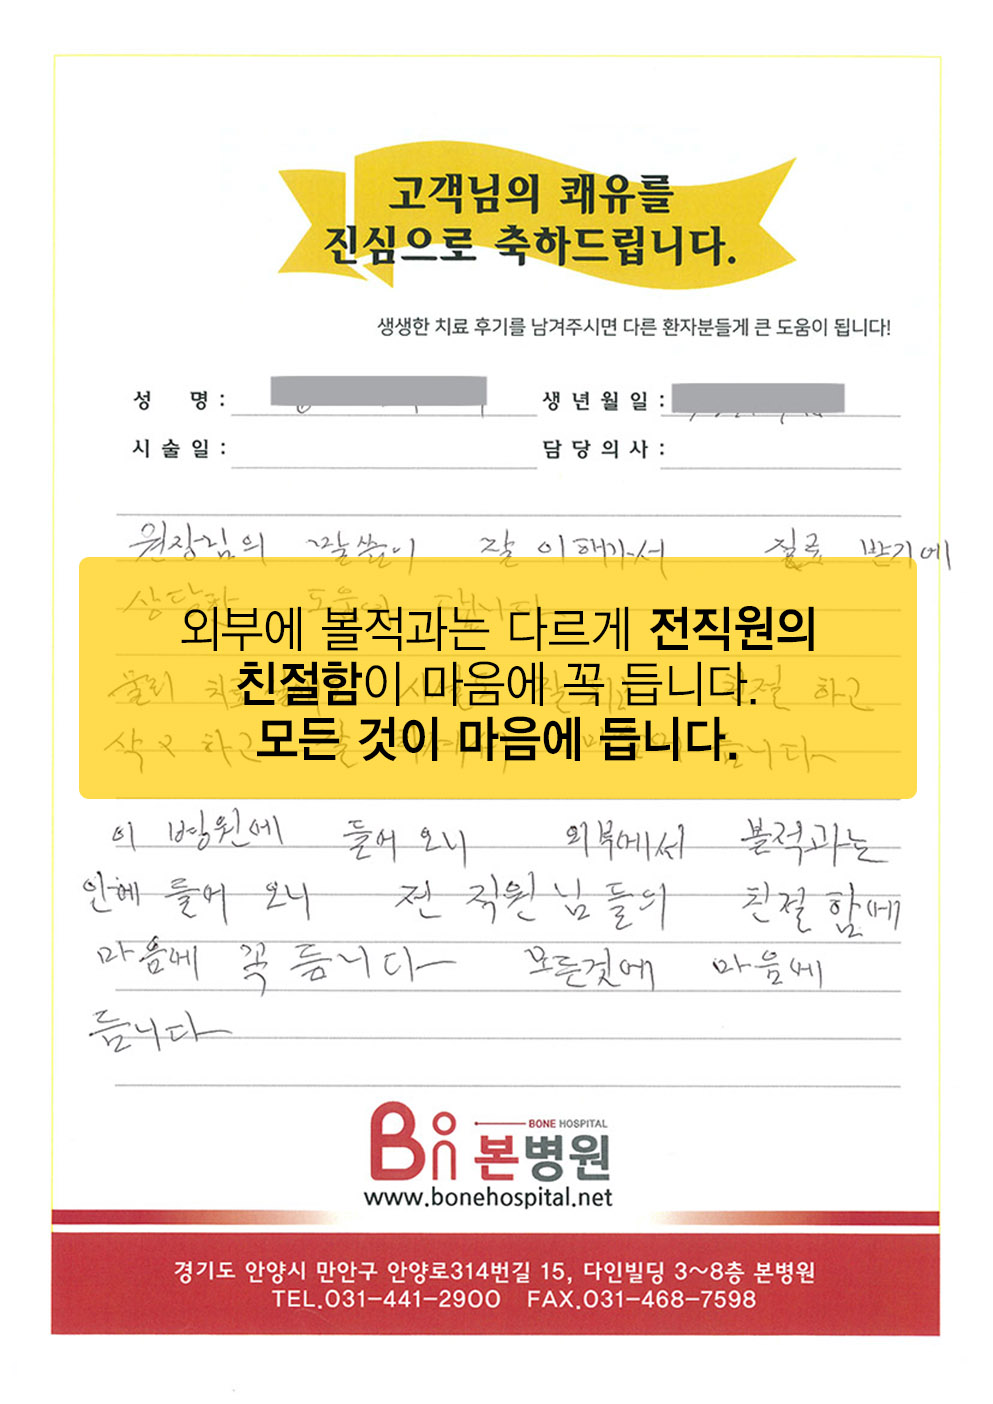 고객님의 쾌유를
진심으로 축하드립니다.
생생한 치료 후기를 남겨주시면 다른 환자분들게 큰 도움이 됩니다!
성 명 : 생년월일 :
시술일 : 담당의사 :
원장님의 말씀이 잘 이해가서 진료 받기에
상당한 도움이 됩니다
외부에 볼적과는 다르게 전직원의
친절함이 마음에 꼭 듭니다.
모든 것이 마음에 듭니다.
물리 치료 친절 하고
하고 니다
이 병원에 들어 오니 외부에서 볼적과는
안에 들어 오니 전 직원님들의 친절함에
마음에 꼭 듬니다 모든것에 마음에
듬니다
BONE HOSPITAL
본병원
www.bonehospital.net
경기도 안양시 만안구 안양로314번길 15, 다인빌딩 3~8층 본병원
TEL.031-441-2900 FAX.031-468-7598